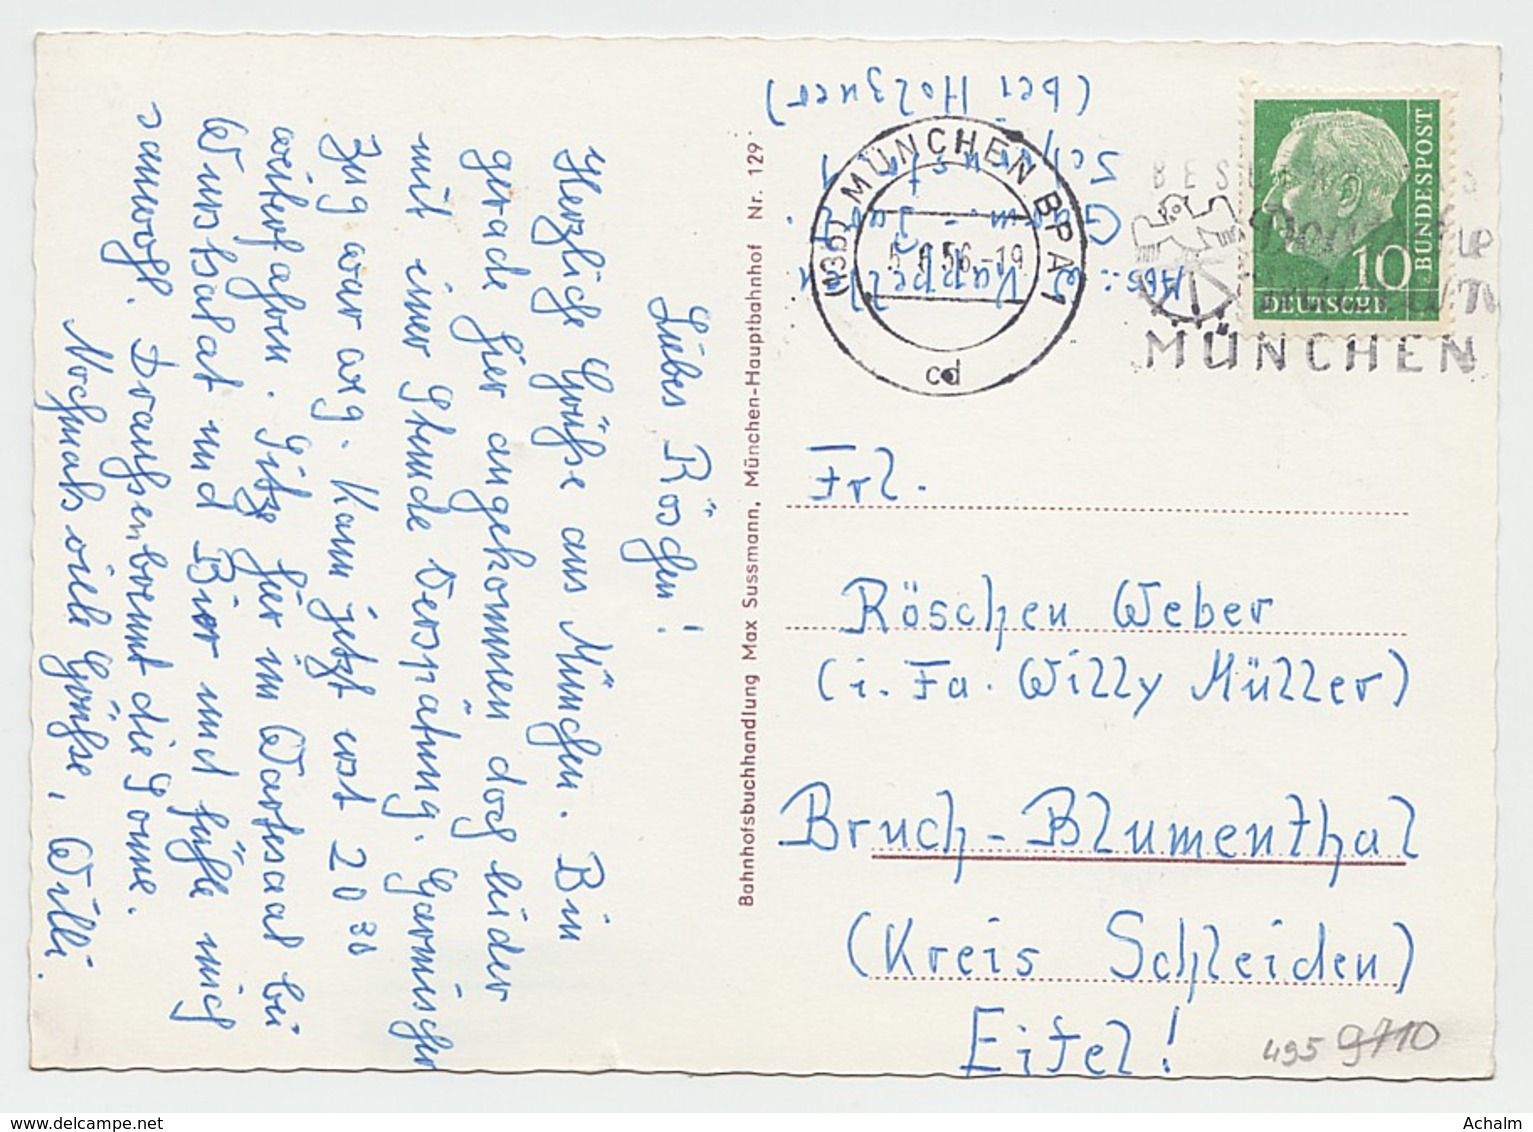 Liebes Röschen!
Herzliche Grüße aus München. Bin
gerade hier angekommen doch leider
mit einer Stunde Verspätung. Garmischer
Zug war weg. Kann jetzt erst 20 30
weiterfahren. Sitze hier im Wartesaal bei
Wurstsalat und Bier und fühle mich
sauwohl. Draußen brennt die Sonne.
Nochmals viele Grüße, Willi.
Bahnhofsbuchhandlung Max Sussmann, München-Hauptbahnhof Nr. 129
Abs.:
Garm.-
(bei Holzner)
(13b) MÜNCHEN BPA 1
5.6.56.-19
cd
MÜNCHEN
10
DEUTSCHE
BUNDESPOST
Frl.
Röschen Weber
(i. Fa. Willy Müller)
Bruch-Blumenthal
(Kreis Schleiden)
Eifel!
495 9710
www.delcampe.net
Achalm